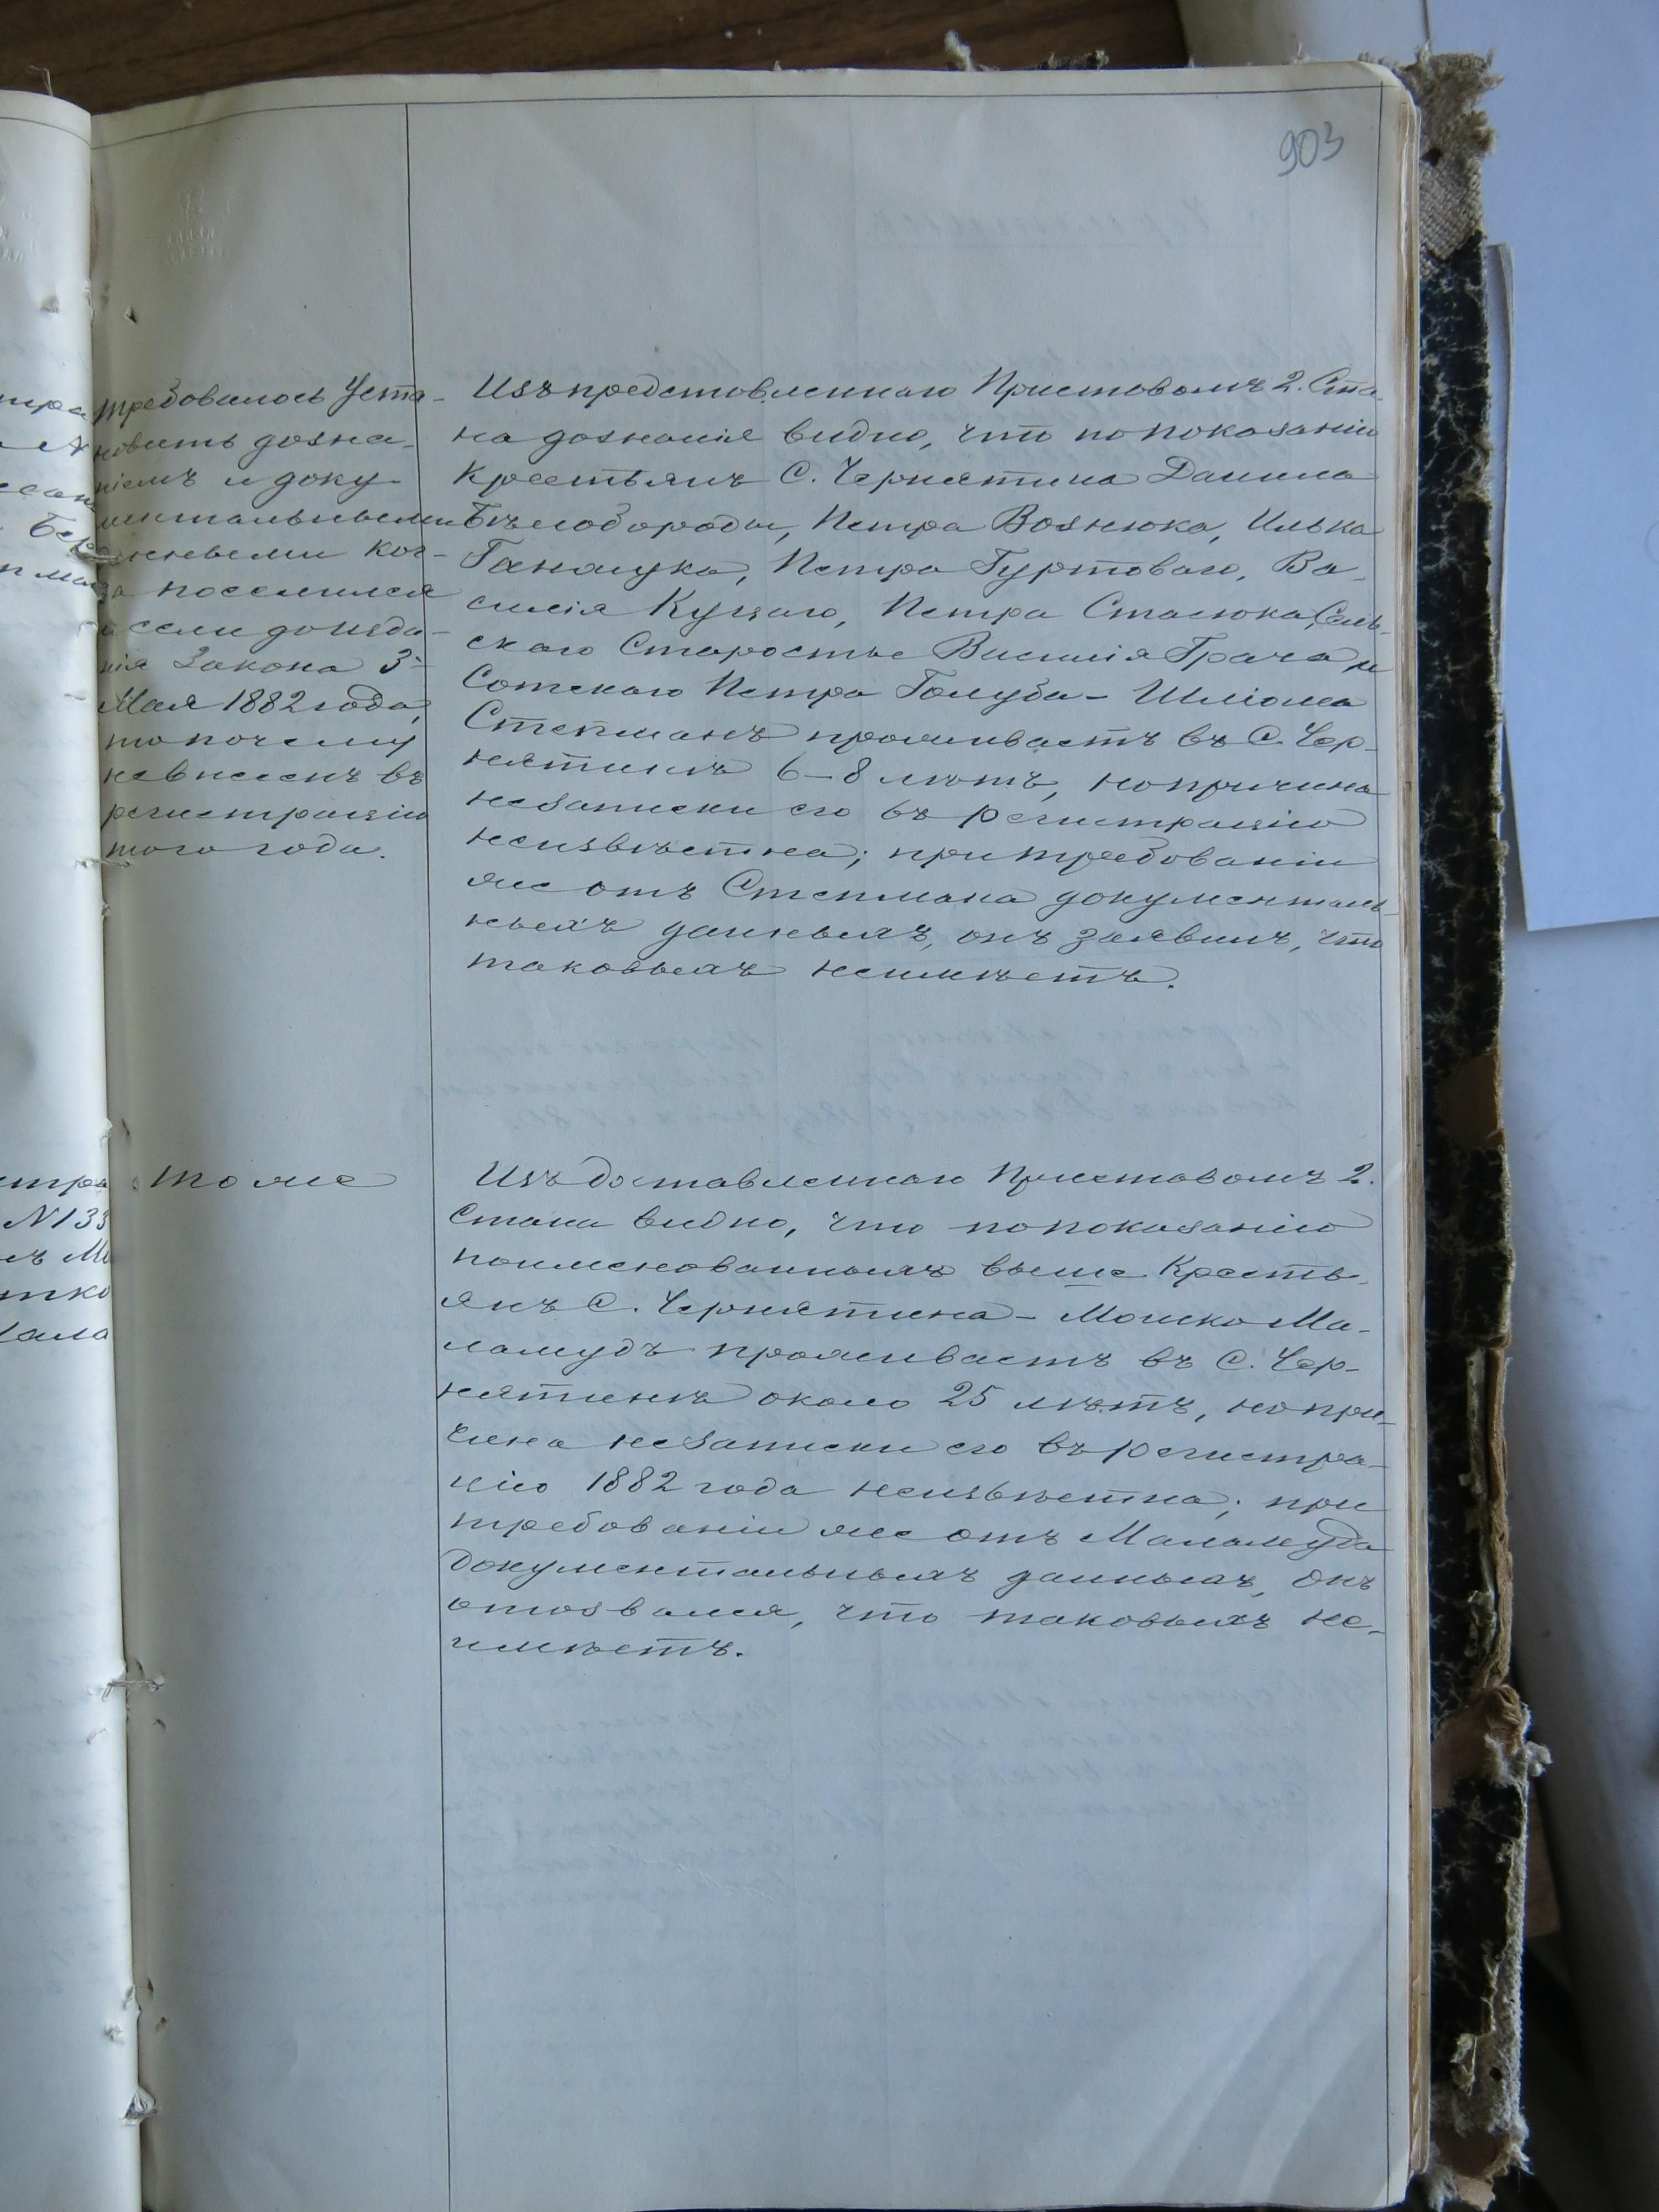 903
требовалось Уста-
новить дозна-
ніемъ и доку-
ментальными
данными ког-
да поселился
если до изда-
нія Закона 3го
Мая 1882 года,
то почему
не внесенъ въ
регистрацію
того года.
Изъ представленнаго Приставомъ 2. Ста-
на дознанія видно, что по показанію
крестьянъ С. Чернятина Данила
Бѣлобороды, Петра Вознюка, Илька
Петра Гуртоваго, Ва-
силія Куцаго, Петра Стасюка, Сель-
скаго Старосты Василія Грача и
Сотскаго Петра Голуба - Шліома
Степманъ проживаетъ въ С. Чер-
нятинѣ 6-8 лѣтъ, но причина
незаписки его въ регистрацію
неизвѣстна; при требованіи
же отъ Степмана документаль-
ныхъ данныхъ, онъ заявилъ, что
таковыхъ неимѣетъ.
тоже
Изъ доставленнаго Приставомъ 2.
Стана видно, что по показанію
поименованныхъ выше Кресть-
янъ С. Чернятина - Мошко Ма-
ламудъ проживаетъ въ С. Чер-
нятинѣ около 25 лѣтъ, но при-
чина незаписки его въ регистра-
цію 1882 года неизвѣстна; при
требованіи же отъ Маламуда
документальныхъ данныхъ, онъ
отозвался, что таковыхъ не-
имѣетъ.